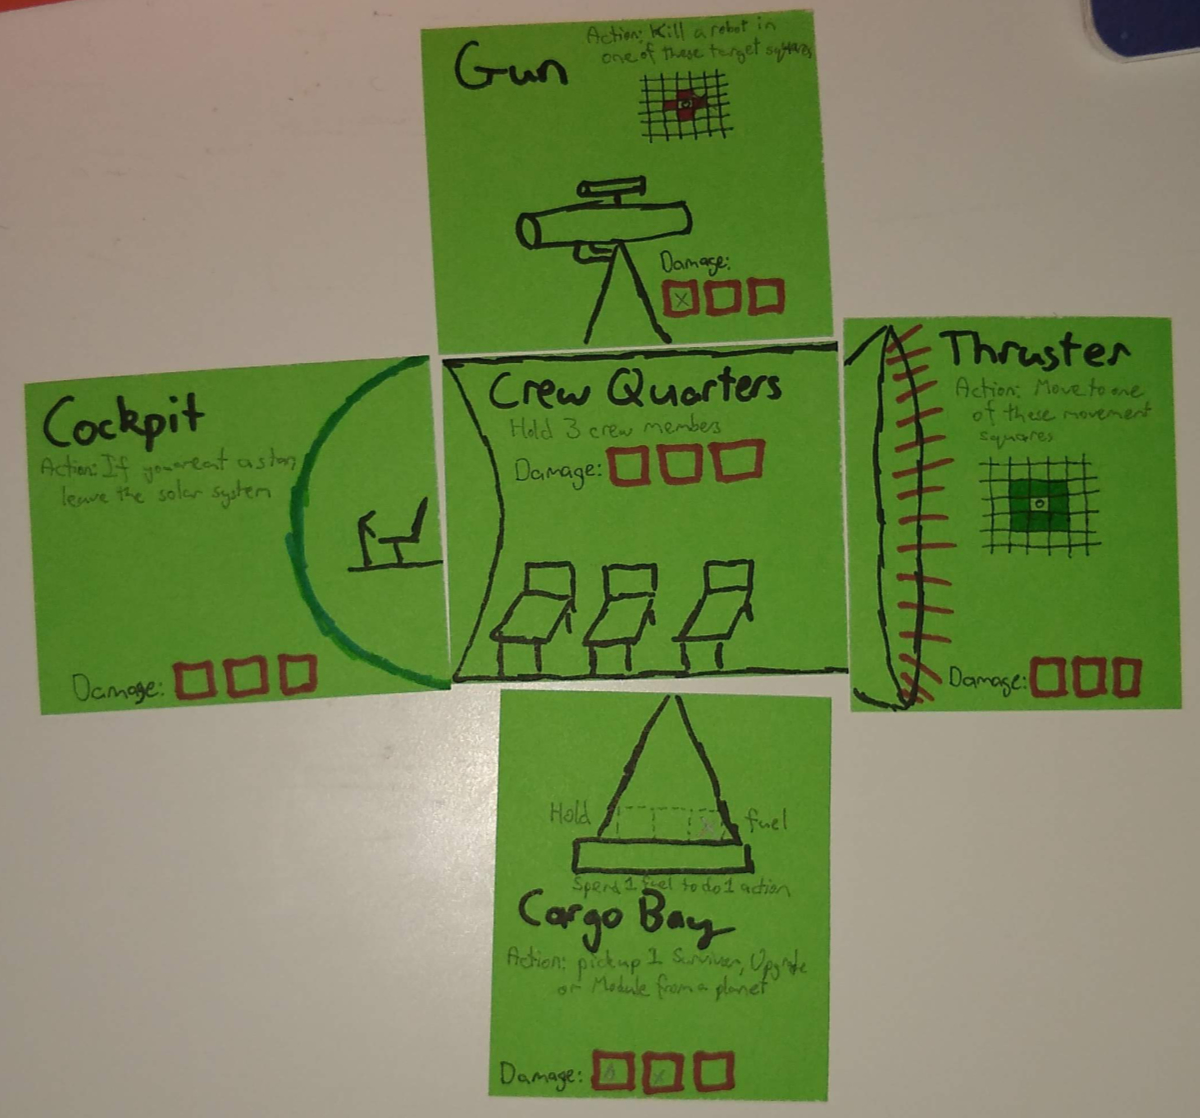 Gun
Action: Kill a robot in
one of these target squares
Damage:
X
Cockpit
Action: If you are at a star
leave the solar system
Damage:
Crew Quarters
Hold 3 crew members
Damage:
Thruster
Action: Move to one
of these movement
squares
Damage:
Hold fuel
Spend 1 fuel to do 1 action
Cargo Bay
Action: pickup 1 Survivor, Upgrade
or Module from a planet
Damage: